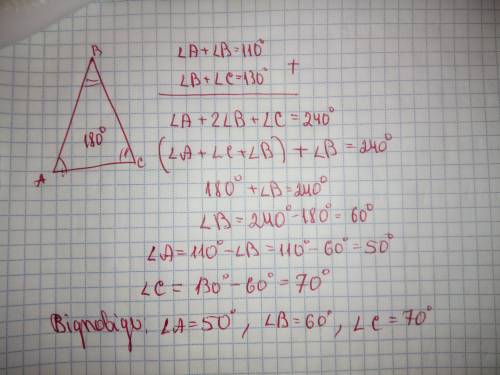 B
180°
A
C
∠A+∠B=110°
∠B+∠C=130°
+
∠A+2∠B+∠C=240°
(∠A+∠C+∠B)+∠B=240°
180°+∠B=240°
∠B=240°-180°=60°
∠A=110°-∠B=110°-60°=50°
∠C=130°-60°=70°
Відповідь: ∠A=50°, ∠B=60°, ∠C=70°